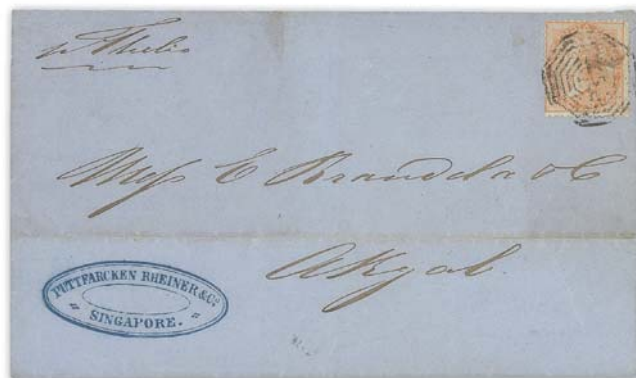 p Thulia
Mess E Brandda & C
Akyab.
PUTTFARCKEN RHEINER & Co.
" SINGAPORE. "